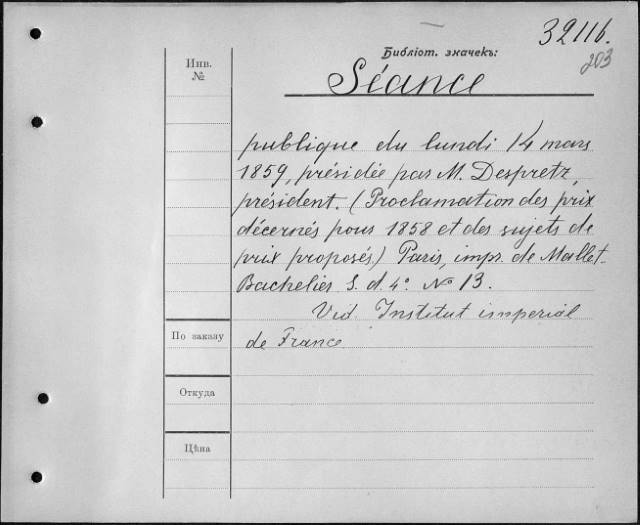 32116.
203
Библіот. значекъ:
Инв.
№
Séance
publique du lundi 14 mars
1859, présidée par M. Despretz,
président. (Proclamation des prix
décernés pour 1858 et des sujets de
prix proposés.) Paris, impr. de Mallet-
Bachelier S. d. 4° № 13.
Vid. Institut imperial
de France.
По заказу
Откуда
Цѣна